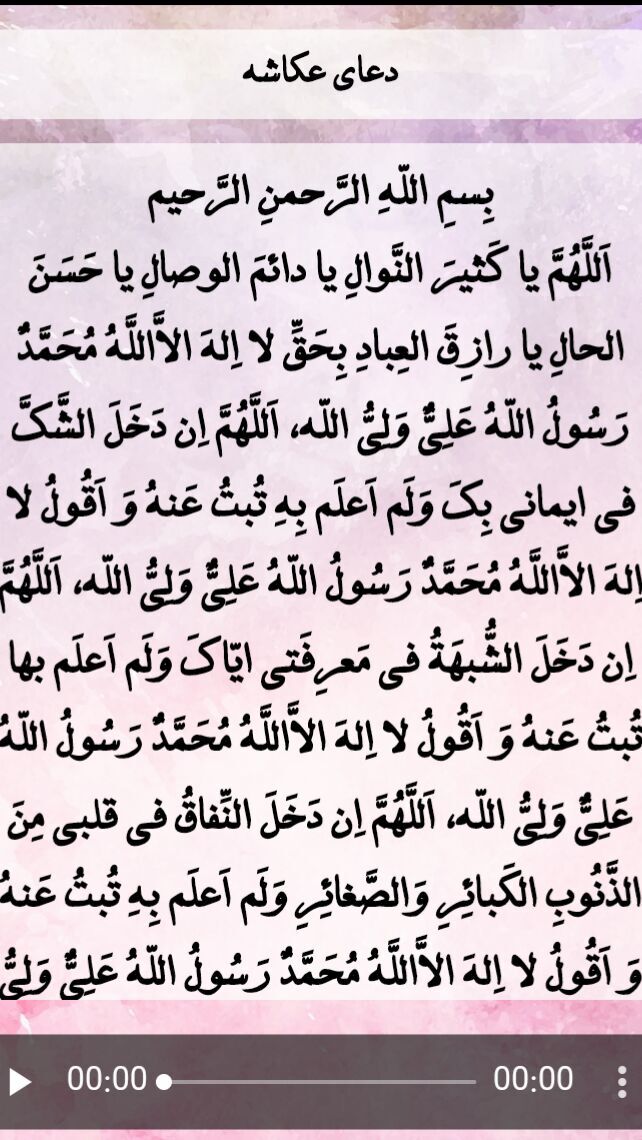 دعای عکاشه
بِسمِ اللّهِ الرَّحمنِ الرَّحیم
اَللَّهُمَّ یا کَثیرَ النَّوالِ یا دائمَ الوصالِ یا حَسَنَ
الحالِ یا رازِقَ العِبادِ بِحَقِّ لا اِلهَ الاَّاللَّهُ مُحَمَّدٌ
رَسُولُ اللّهُ عَلِیٌّ وَلِیُّ اللّه، اَللَّهُمَّ اِن دَخَلَ الشَّکَّ
فی ایمانی بِکَ وَلَم اَعلَم بِهِ تُبتُ عَنهُ وَ اَقُولُ لا
اِلهَ الاَّاللَّهُ مُحَمَّدٌ رَسُولُ اللّهُ عَلِیٌّ وَلِیُّ اللّه، اَللَّهُمَّ
اِن دَخَلَ الشُّبهَةُ فی مَعرِفَتی ایّاکَ وَلَم اَعلَم بها
تُبتُ عَنهُ وَ اَقُولُ لا اِلهَ الاَّاللَّهُ مُحَمَّدٌ رَسُولُ اللّهُ
عَلِیٌّ وَلِیُّ اللّه، اَللَّهُمَّ اِن دَخَلَ النِّفاقُ فی قلبی مِنَ
الذَّنُوبِ الکَبائِرِ وَالصَّغائِرِ وَلَم اَعلَم بِهِ تُبتُ عَنهُ
وَ اَقُولُ لا اِلهَ الاَّاللَّهُ مُحَمَّدٌ رَسُولُ اللّهُ عَلِیٌّ وَلِیُّ
00:00 00:00